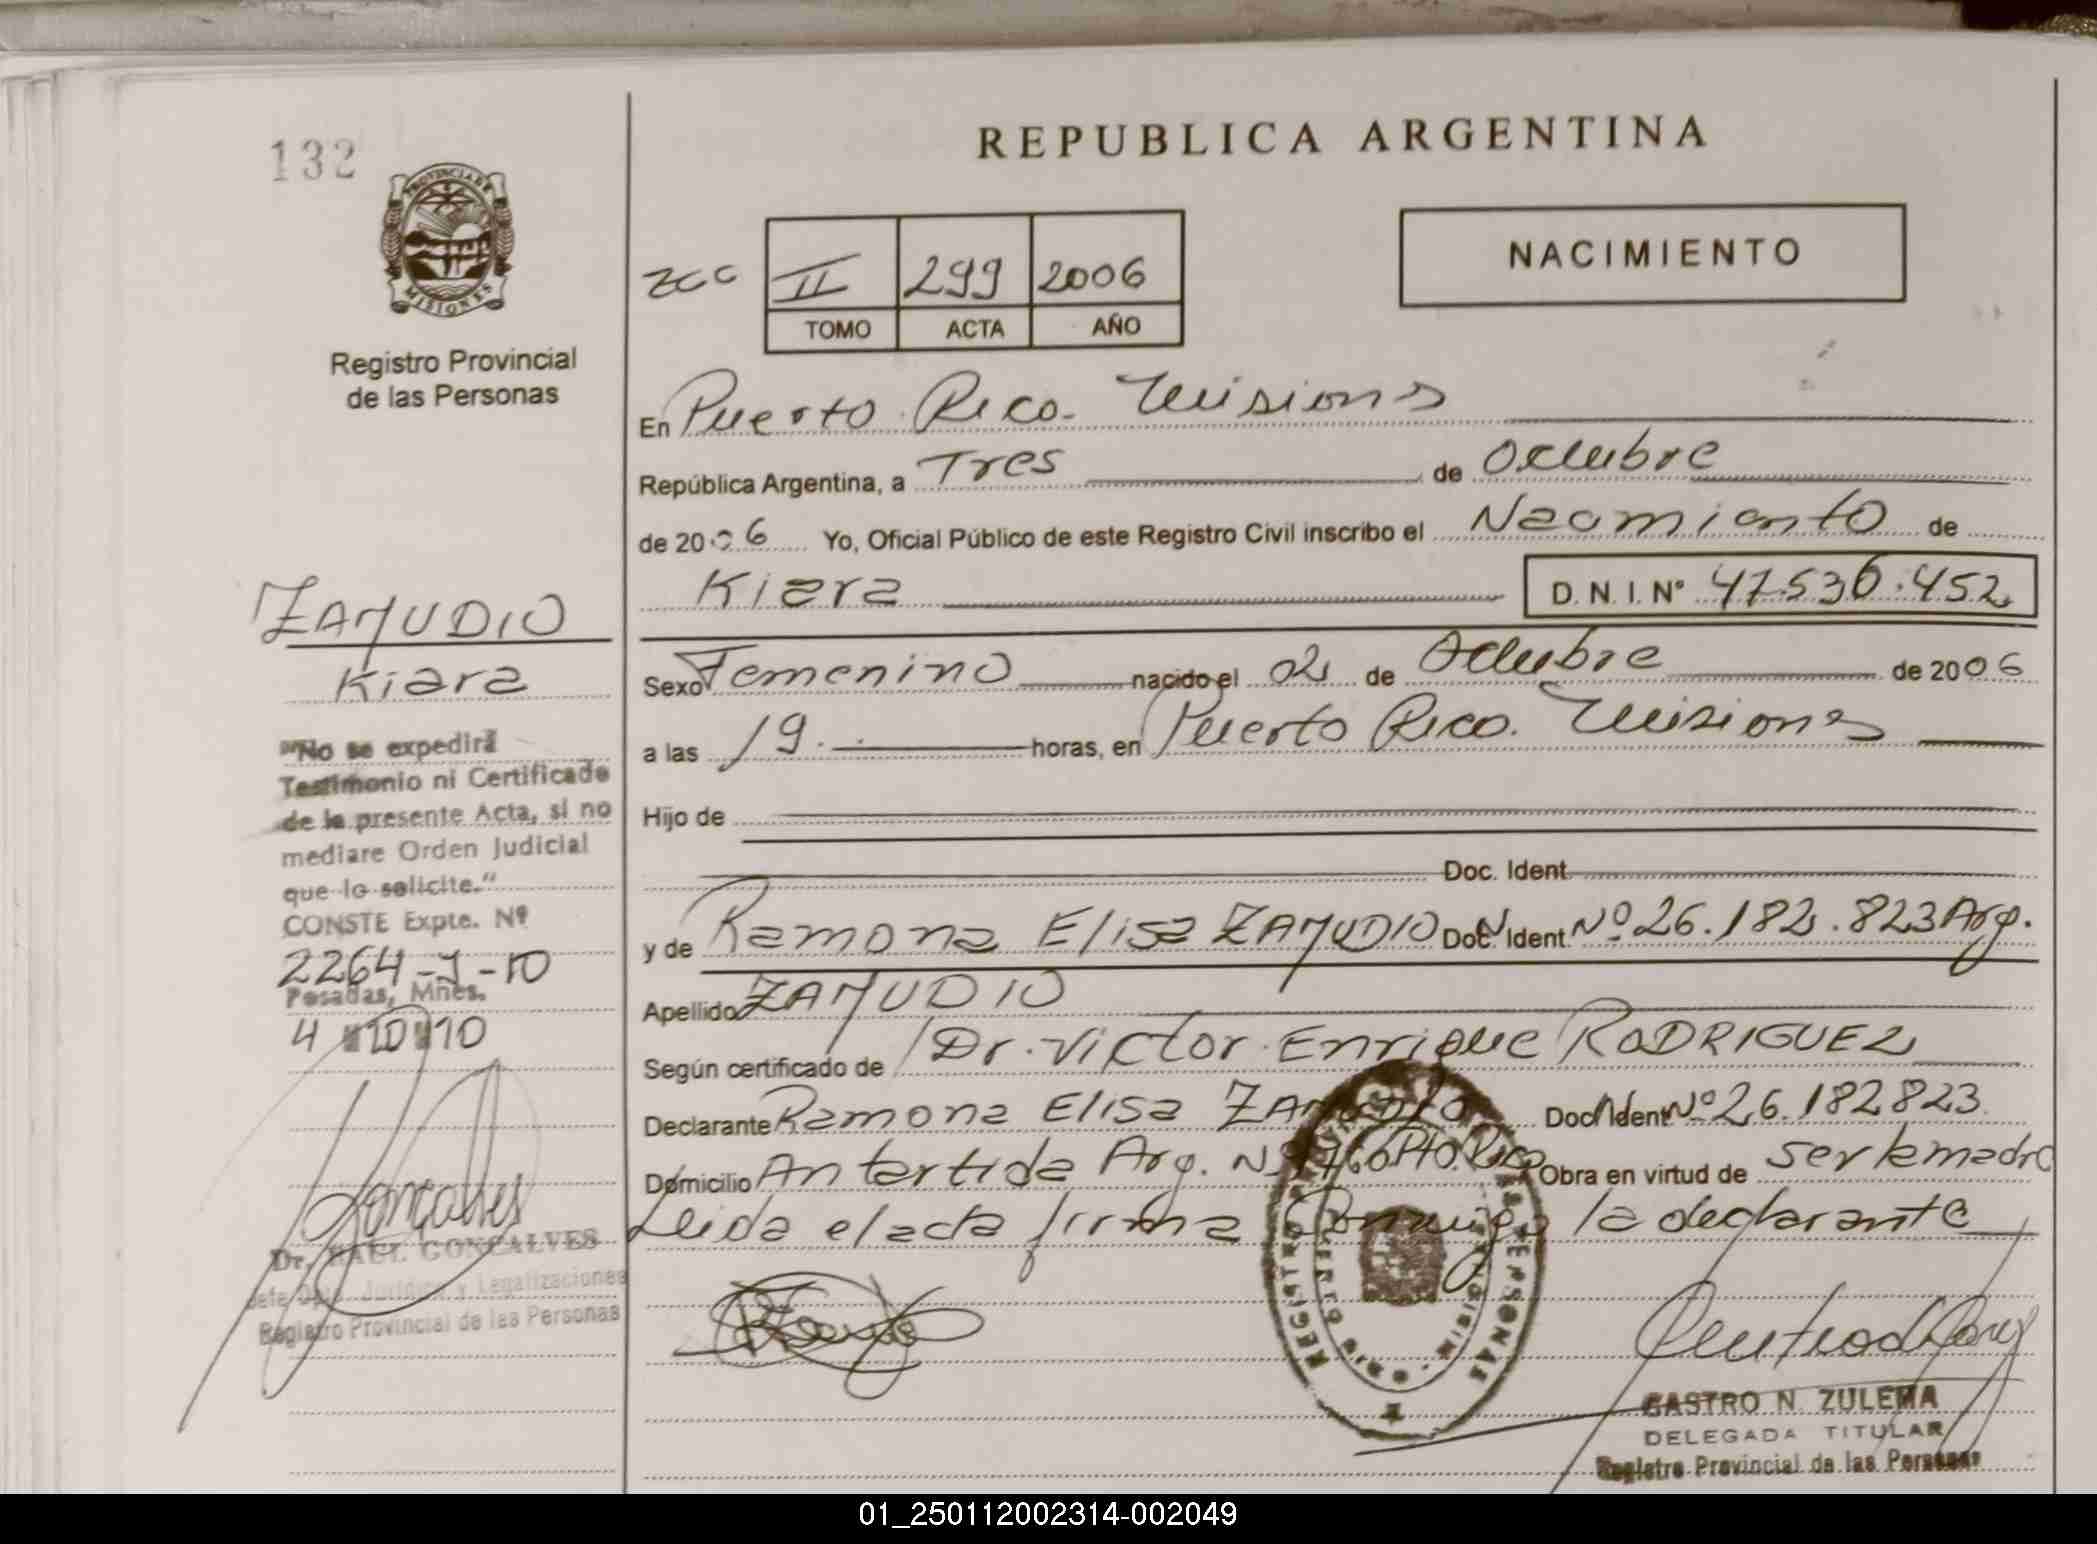 132
PROVINCIA DE
MISIONES
Registro Provincial
de las Personas
ZAMUDIO
Kiara
"No se expedirá
Testimonio ni Certificado
de la presente Acta, si no
mediare Orden Judicial
que lo solicite."
CONSTE Expte. Nº
2264-J-10
Posadas, Mnes.
4 10 10
Gonçalves
Dr. RAUL GONCALVES
Jefe Dpto. Jurídico y Legalizaciones
Registro Provincial de las Personas
REPUBLICA ARGENTINA
II 299 2006
TOMO ACTA AÑO
NACIMIENTO
En Puerto Rico. Misiones
República Argentina, a Tres de Octubre
de 2006 Yo, Oficial Público de este Registro Civil inscribo el Nacimiento de
Kiara D. N. I. Nº 47.536.452
Sexo Femenino nacido el 02 de Octubre de 2006
a las 19. horas, en Puerto Rico. Misiones
Hijo de
Doc. Ident.
y de Ramona Elisa ZAMUDIO Doc. Ident. Nº 26.182.823 Arg.
Apellido ZAMUDIO
Según certificado de Dr. Victor Enrique RODRIGUEZ
Declarante Ramona Elisa ZAMUDIO Doc. Ident. Nº 26.182823
Domicilio Antartida Arg. Nº 1760 Pto. Rico Obra en virtud de ser la madre
Leida el acta firma Conmigo la declarante
CASTRO N. ZULEMA
DELEGADA TITULAR
Registro Provincial de las Personas
01_250112002314-002049